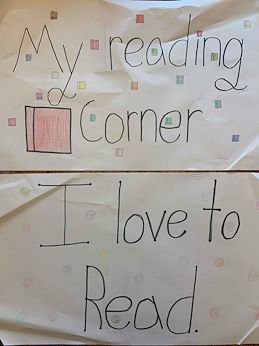 My reading
Corner
I love to
Read.